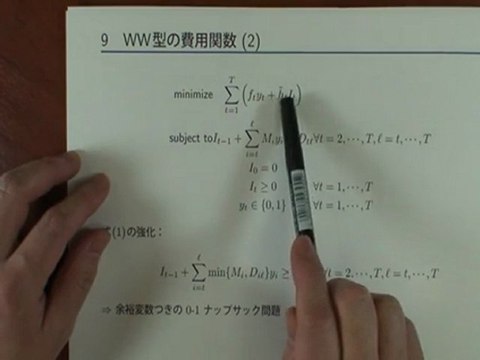 9 WW型の費用関数 (2)
minimize \sum_{t=1}^{T} (f_t y_t + \bar{h}_t I_t)
subject to I_{t-1} + \sum_{i=t}^{ℓ} M_i y_i D_{tℓ} ∀t = 2, ⋯, T, ℓ = t, ⋯, T
I_0 = 0
I_t ≥ 0 ∀t = 1, ⋯, T
y_t ∈ {0, 1} ∀t = 1, ⋯, T
(1)の強化：
I_{t-1} + \sum_{i=t}^{ℓ} min{M_i, D_{iℓ}} y_i ≥ ∀t = 2, ⋯, T, ℓ = t, ⋯, T
⇒ 余裕変数つきの 0-1 ナップサック問題